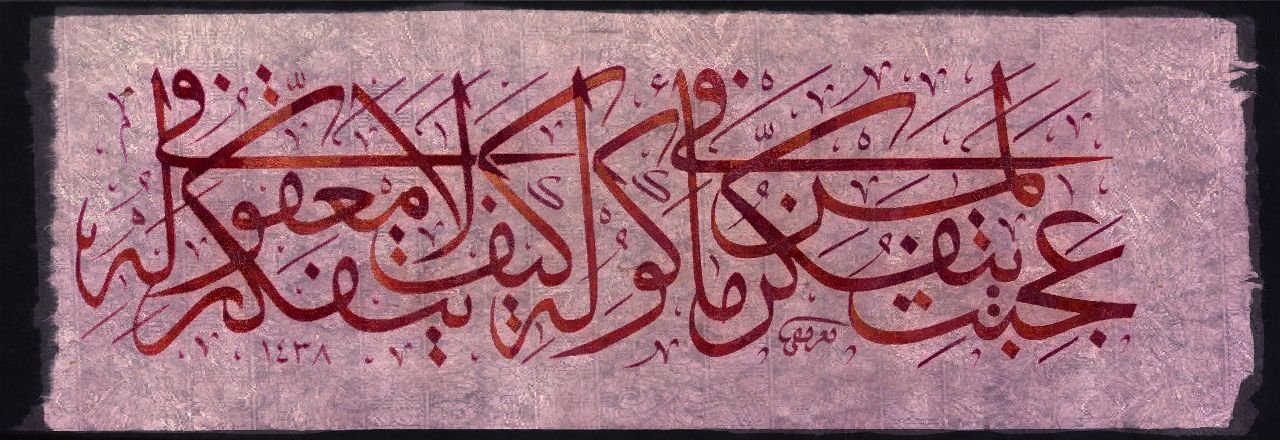 عجبت لمن يتفكر في مأكوله كيف لا يتفكر في معقوله
١٤٣٨